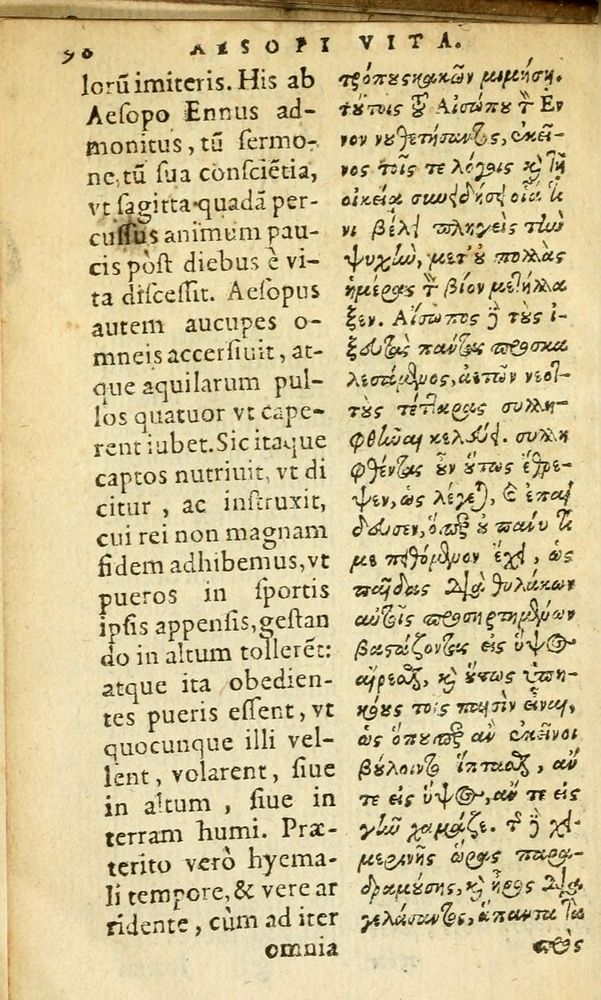 90 AESOPI VITA.
lorũ imiteris. His ab
Aeſopo Ennus ad-
monitus, tũ ſermo-
ne, tũ ſua conſciẽtia,
vt ſagitta quadã per-
cuſſus animum pau-
cis pòſt diebus è vi-
ta diſceſſit. Aeſopus
autem aucupes o-
mneis accerſiuit, at-
que aquilarum pul-
los quatuor vt cape-
rent iubet. Sic itaque
captos nutriuit, vt di
citur, ac inſtruxit,
cui rei non magnam
fidem adhibemus, vt
pueros in ſportis
ipſis appenſis, geſtan
do in altum tollerẽt:
atque ita obedien-
tes pueris eſſent, vt
quocunque illi vel-
lent, volarent, ſiue
in altum, ſiue in
terram humi. Præ-
terito verò hyema-
li tempore, & vere ar
ridente, cùm ad iter
omnia
τρόπους κακῶν μιμήσῃ.
τούτοις τοῦ Αἰσώπου τὸν Ἔν
νον νουθετήσαντος, ἐκεῖ-
νος τοῖς τε λόγοις καὶ τῇ
οἰκείᾳ συνειδήσει οἷά τι
νι βέλει πληγεὶς τὴν
ψυχὴν, μετ' οὐ πολλὰς
ἡμέρας τὸν βίον μετήλλα
ξεν. Αἴσωπος δὲ τοὺς ἰ-
ξευτὰς πάντας προσκα
λεσάμενος, ἀετῶν νεοτ-
τοὺς τέτταρας συλλη-
φθῆναι κελεύει. συλλη
φθέντας οὖν οὕτως ἔθρε-
ψεν, ὡς λέγεται, καὶ ἐπαί
δευσεν, ὅπερ οὐ πάνυ τι
με πειθόμενον ἔχει, ὡς
παῖδας διὰ θυλάκων
αὐτοῖς προσηρτημένων
βαστάζοντας εἰς ὕψος
αἴρεσθαι, καὶ οὕτως ὑπη-
κόους τοῖς παισὶν εἶναι,
ὡς ὅπουπερ ἂν ἐκεῖνοι
βούλοιντο ἵπτασθαι, ἄν
τε εἰς ὕψος, ἄν τε εἰς
γῆν χαμάζε. τῆς δὲ χει-
μερινῆς ὥρας παρα-
δραμούσης, καὶ ἦρος δια
γελάσαντος, ἅπαντα τὰ
πρὸς